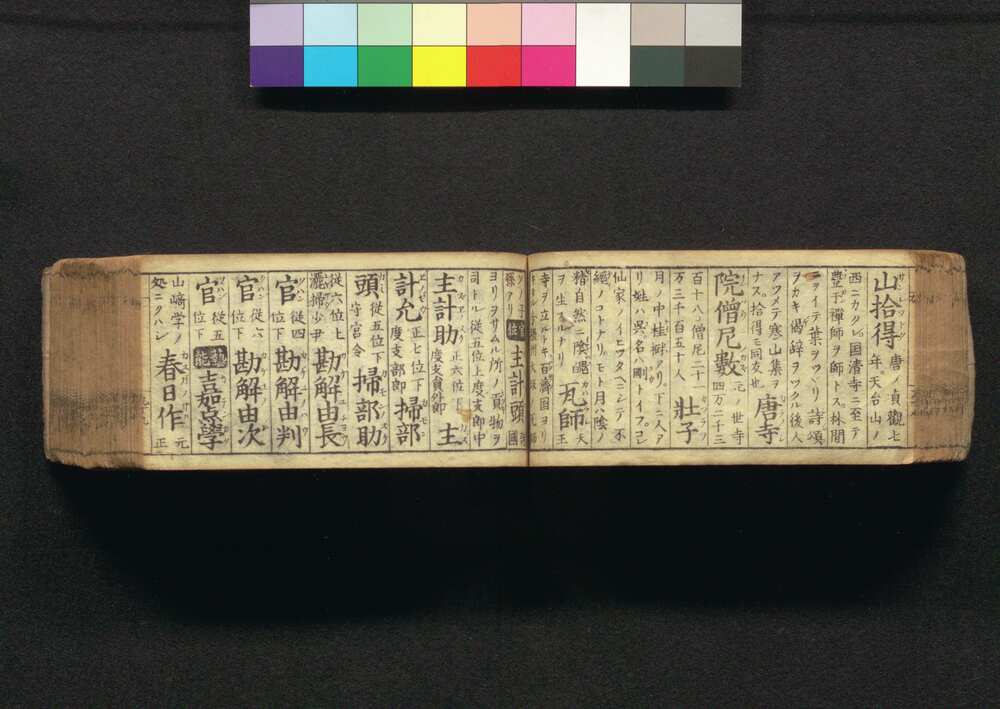 山拾得 唐ノ貞觀七年天台山ノ
西ニカクレ国清寺ニ至テ
豊干禪師ヲ師トス林間
ニヲイテ葉ヲツヾリ詩頌
ヲカキ偈辞ヲツクル後人
アツメテ寒山集ヲ
ナス拾得モ同友也 唐寺
院僧尼數 元ノ世寺四万二千三
百十八僧尼二十一
万三千百五十人 壯子
月ノ中桂樹アリ下ニ人ア
リ姓ハ呉名ハ剛トイフコレ
仙家ノイヒツタヘニシテ不
經ノコトナリモト月ハ陰ノ
精自然ニ陰
ヲ生ルナリ 瓦師 天王
寺ヲ立ルトキ百濟国ヨリ
官位 主計頭 國
ヨリヲサムル所ノ貢物ヲ
司トル従五位上度支郎中
主計助 正六位下度支員外郎 主
計允 正七位下度支部郎 掃部
頭 従五位下守宮令 掃部助
従六位上灑掃少尹 勘解由長
官 従四位下 勘解由判
官 従六位下 勘解由次
官 従五位下 藝能 嘉点學
山﨑学ノ処ニクハシ 春日作 元正